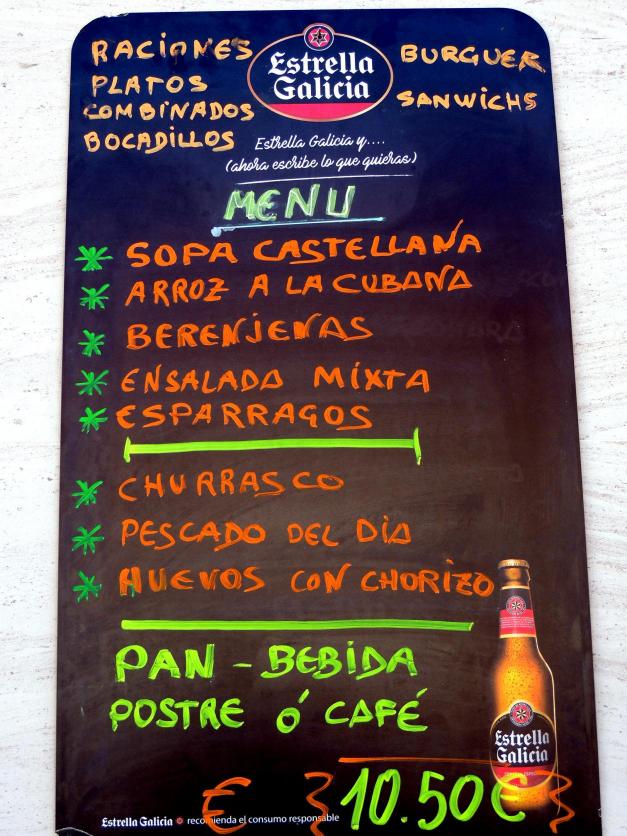 RACIONES
PLATOS
COMBINADOS
BOCADILLOS
Estrella
Galicia
BURGUER
SANWICHS
Estrella Galicia y....
(ahora escribe lo que quieras)
MENU
* SOPA CASTELLANA
* ARROZ A LA CUBANA
* BERENJENAS
* ENSALADA MIXTA
* ESPARRAGOS
* CHURRASCO
* PESCADO DEL DIA
* HUEVOS CON CHORIZO
PAN - BEBIDA
POSTRE Ó CAFÉ
Estrella
Galicia
€ 10.50€
Estrella Galicia recomienda el consumo responsable